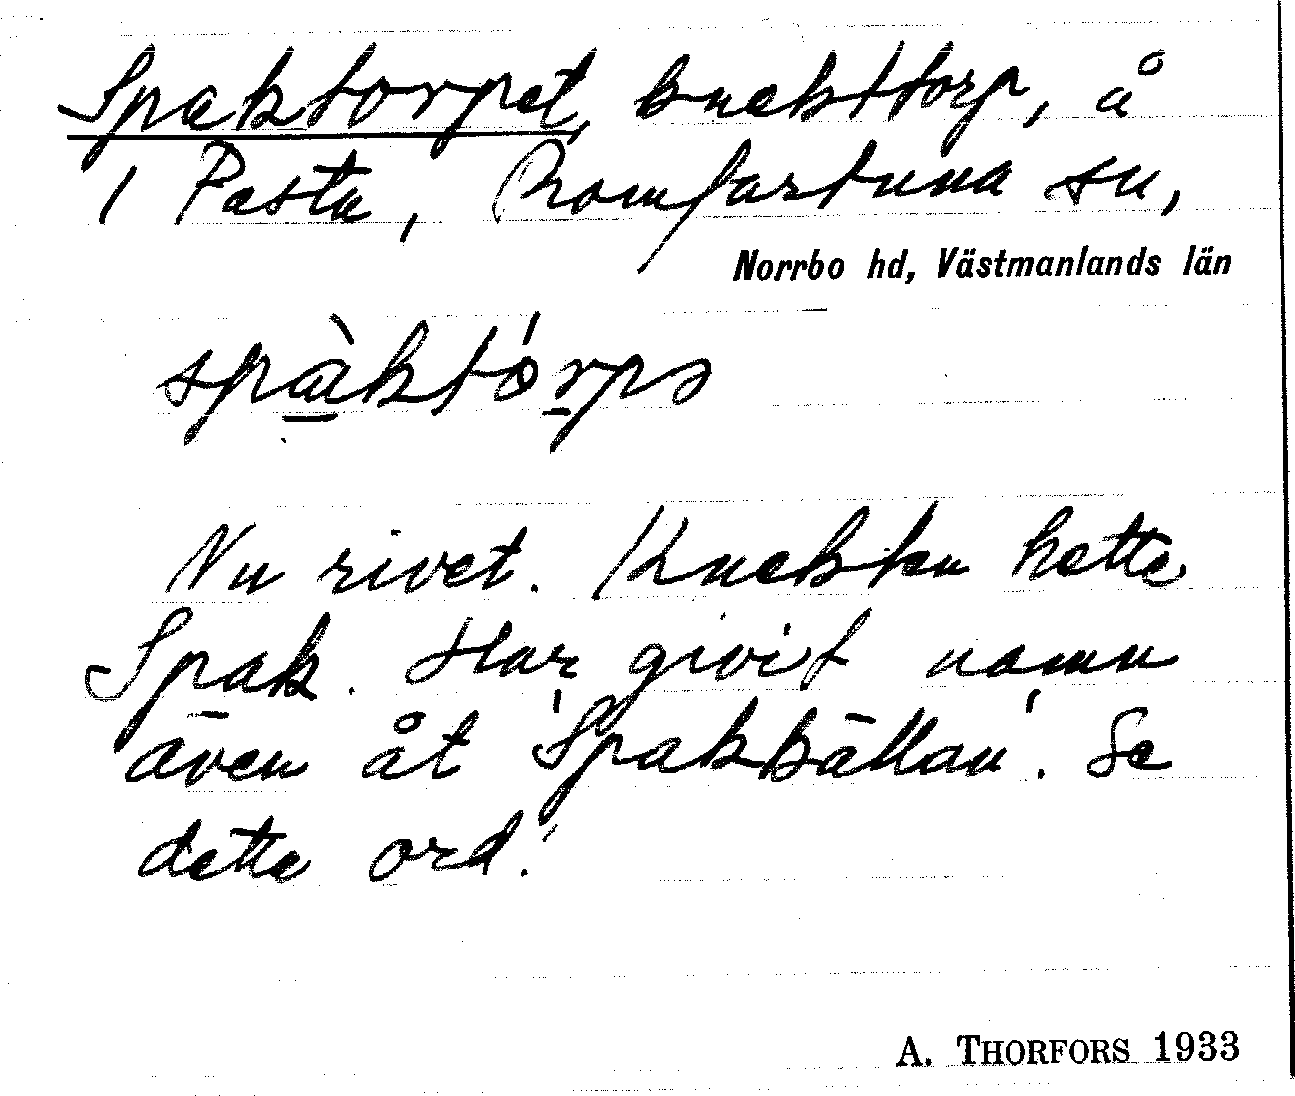 Spaktorpet, knekttorp, å
1 Pasta, Romfartuna sn,
Norrbo hd, Västmanlands län
spàktórpə
Nu rivet. Knekten hette
Spak. Har givit namn
även åt 'Spakkällan'. Se
detta ord!
A. THORFORS 1933